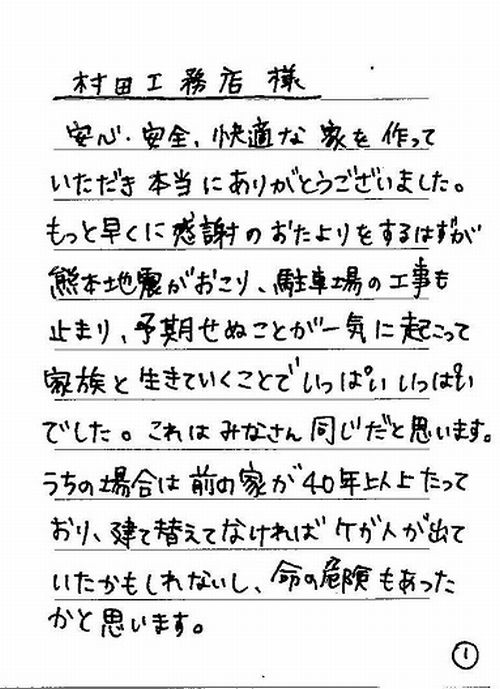 村田工務店 様
安心・安全、快適な 家を 作って
いただき 本当 にありがとうございました。
もっと早くに 感謝の おたよりをするはずが
熊本地震がおこり、駐車場の工事も
止まり、予期せぬことが一気に 起こって
家族と 生きていくことで いっぱい いっぱい
でした。これは みなさん 同じだと思います。
うちの場合は 前の家が 40年以上たって
おり、建て替えてなければ ケガ人が出て
いたかもしれないし、命の危険もあった
かと思います。
1